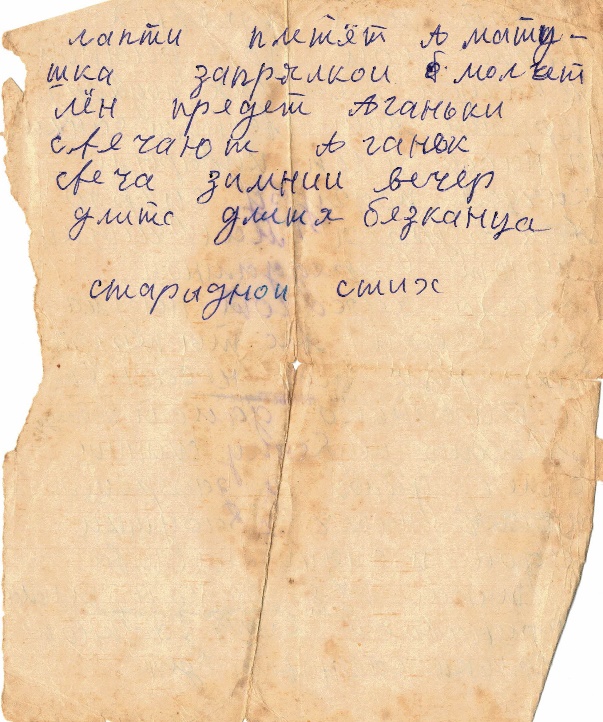 лапти плетёт А мату-
шка запрялкой б молчет
лён прядет Аганьки
свечают Аганёк
свеча зимнии вечер
длитс длитя бязканца
старидной стих